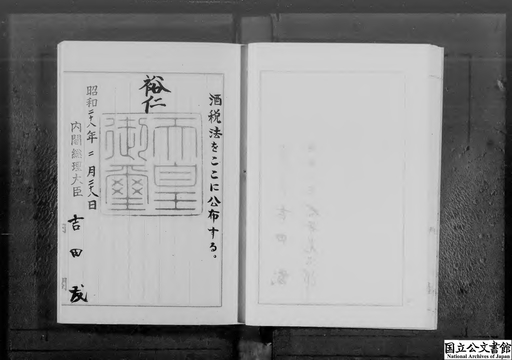 酒税法をここに公布する。
裕仁
天皇御璽
昭和二十八年二月二十八日
内閣総理大臣
吉田茂
国立公文書館
National Archives of Japan